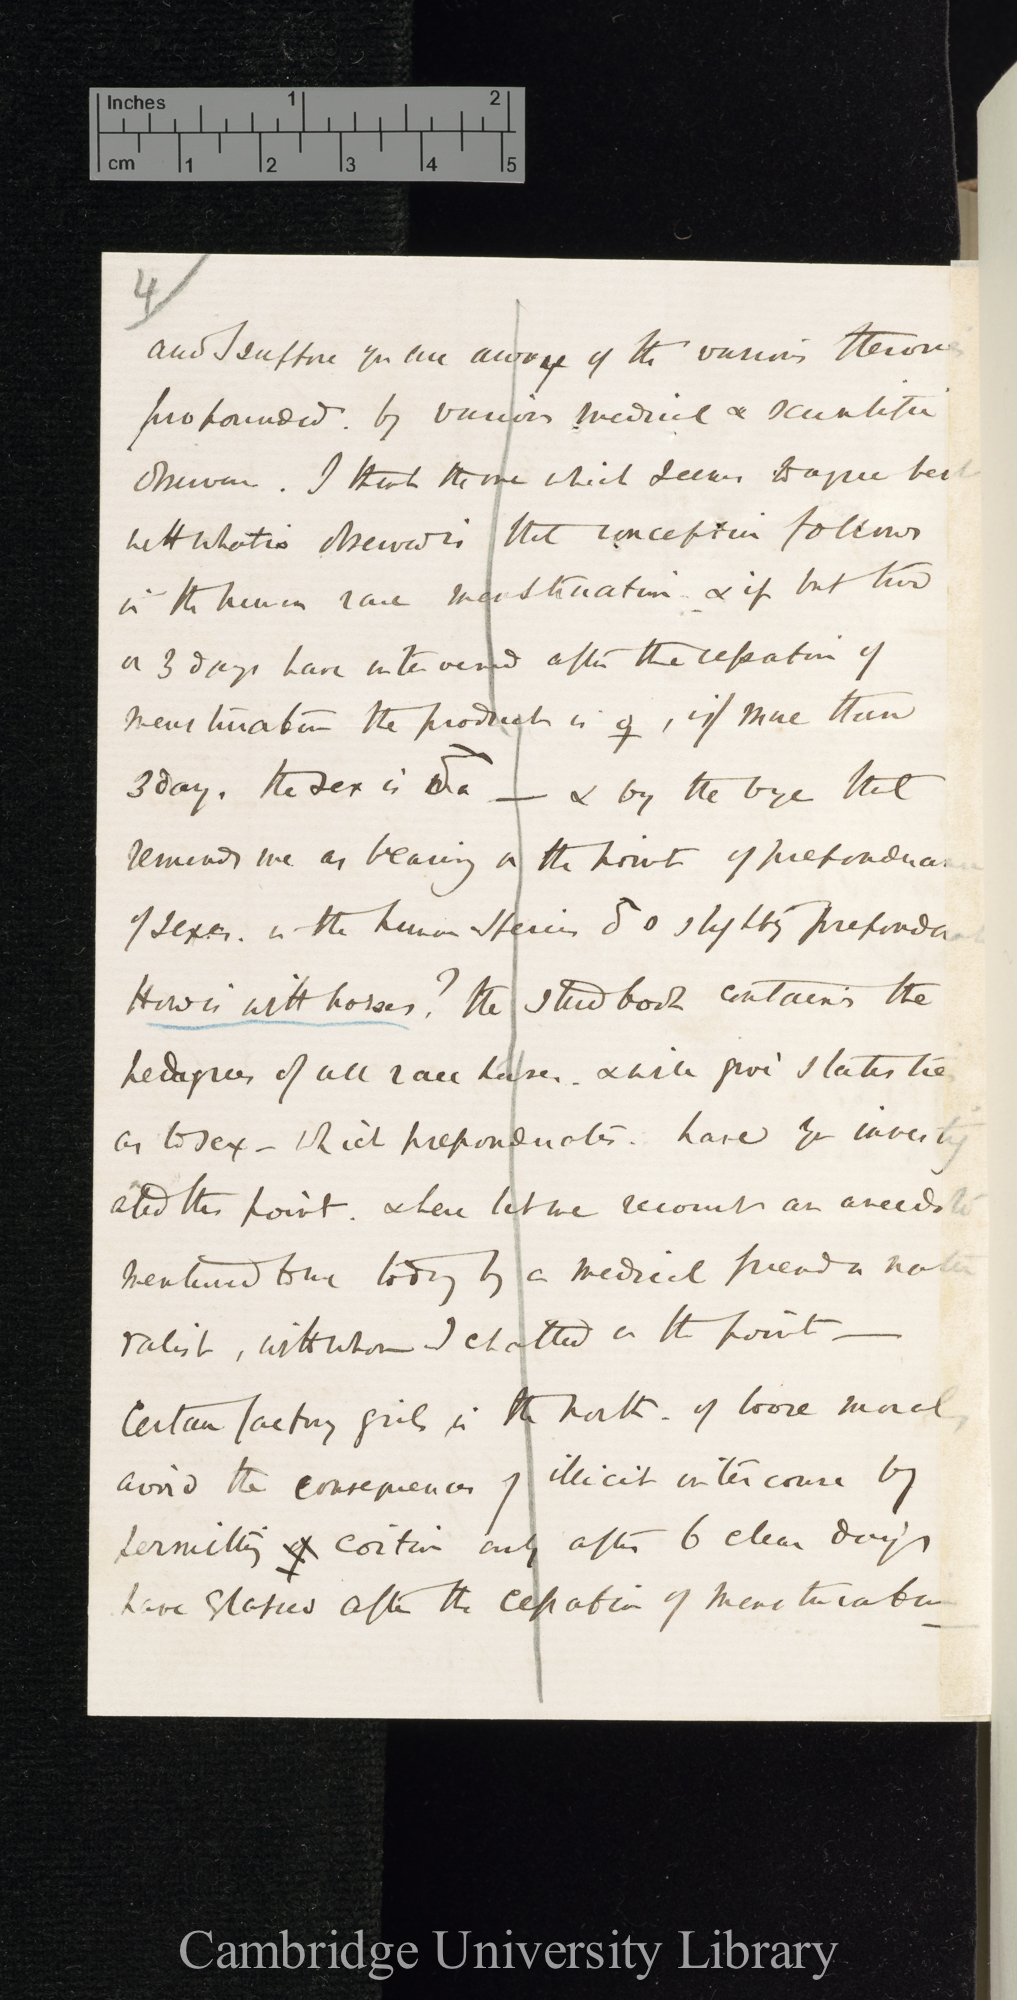 Inches 1 2
cm 1 2 3 4 5
4
and I suppose you are aware of the various theories
propounded. by various medical & scientific
observers. I think the one which seems to agree best
with what is observed is that conception follows
in the human race menstruation & if but two
or 3 days have intervened after the cessation of
menstruation the product is ♀, if more than
3 days. the sex is ♂ — & by the bye that
reminds me as bearing on the point of preponderance
of sexes. in the human species ♂ slightly preponder
How is with horses? the stud book contains the
pedagrees of all race horses. & will give statistics
as to sex – which preponderates. have you investig
ated this point. & here let me recount an anecdote
mentioned to me today by a medical friend a natu
ralist, with whom I chatted on the point —
Certain factory girls in the north. of loose morals,
avoid the consequences of illicit intercourse by
permitting coition only after 6 clear days
have elapsed after the cessation of menstruation
Cambridge University Library